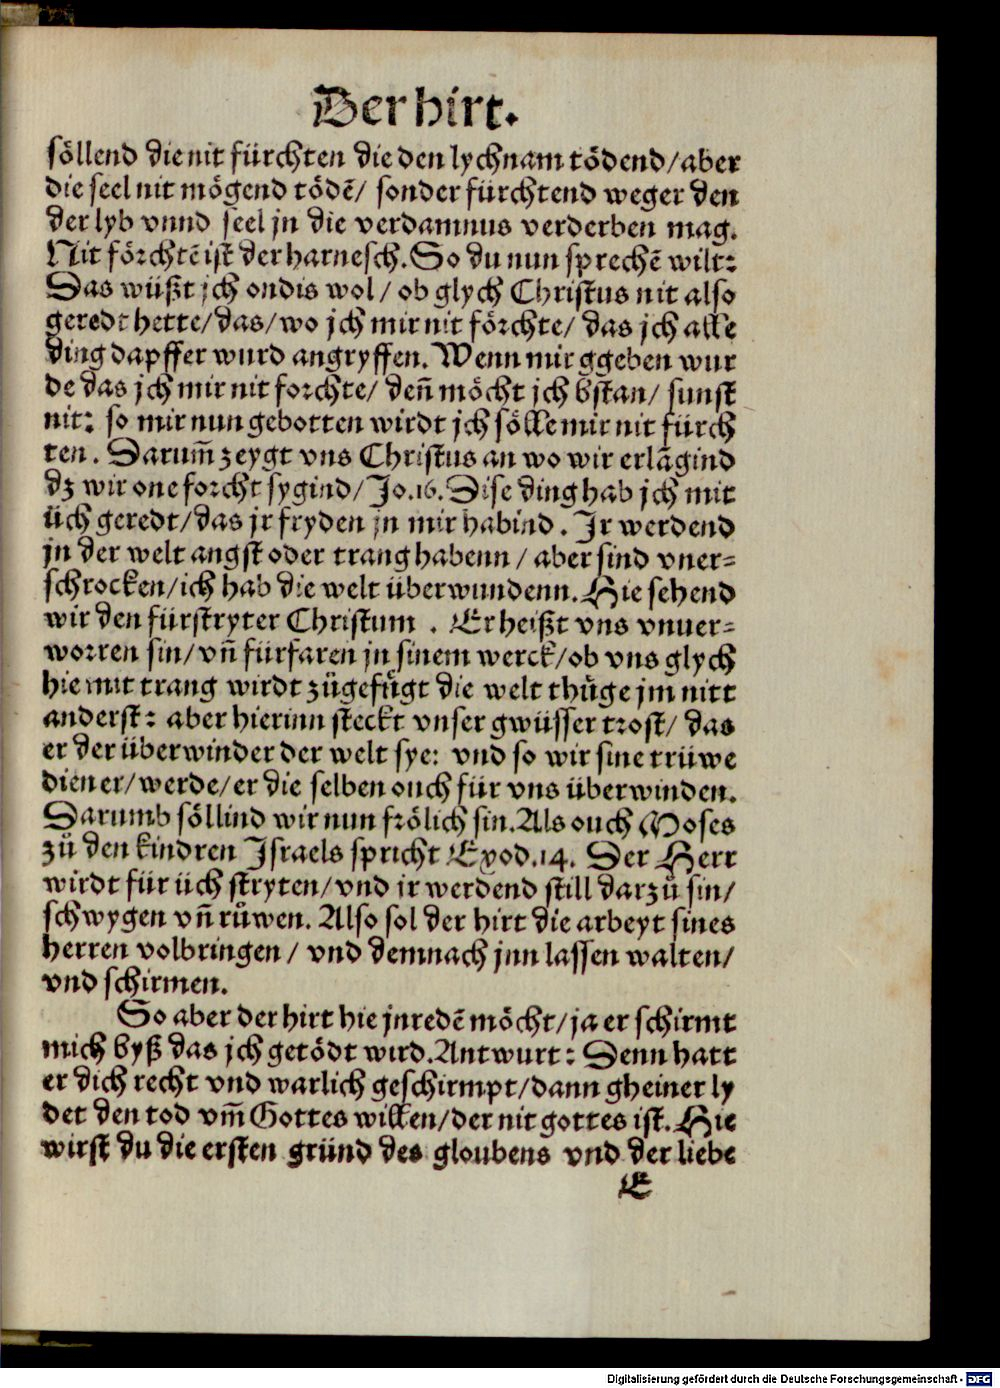 Der hirt.
söllend die nit fürchten die den lychnam tödend/aber
die seel nit mögend tödē/ sonder fürchtend weger den
der lyb vnnd seel jn die verdamnus verderben mag.
Nit förchtē ist der harnesch. So du nun sprechē wilt:
Das wüßt jch ondis wol/ ob glych Christus nit also
geredt hette/das/wo jch mir nit förchte/ das jch alle
ding dapffer wurd angryffen. Wenn mir ggeben wur
de das jch mir nit forchte/ deñ möcht jch bstan/ sunst
nit: so mir nun gebotten wirdt jch sölle mir nit fürch
ten. Darum̃ zeygt vns Christus an wo wir erlãgind
dz wir one forcht sygind/Jo.16. Dise ding hab jch mit
üch geredt/das jr fryden jn mir habind. Jr werdend
jn der welt angst oder trang habenn/ aber sind vner-
schrocken/ich hab die welt überwundenn. Hie sehend
wir den fürstryter Christum . Er heißt vns vnuer-
worren sin/vñ fürfaren jn sinem werck/ob vns glych
hie mit trang wirdt zůgefůgt die welt thůge jm nitt
anderst: aber hierinn steckt vnser gwüsser trost/ das
er der überwinder der welt sye: vnd so wir sine trüwe
diener/werde/er die selben ouch für vns überwinden.
Darumb söllind wir nun frölich sin. Als ouch Moses
zů den kindren Israels spricht Exod.14. Der Herr
wirdt für üch stryten/vnd ir werdend still darzů sin/
schwygen vñ růwen. Also sol der hirt die arbeyt sines
herren volbringen/ vnd demnach jnn lassen walten/
vnd schirmen.
So aber der hirt hie jnredē möcht/ja er schirmt
mich byß das jch getödt wird. Antwurt: Denn hatt
er dich recht vnd warlich geschirmpt/dann gheiner ly
det den tod vm̃ Gottes willen/der nit gottes ist. Hie
wirst du die ersten gründ des gloubens vnd der liebe
E
Digitalisierung gefördert durch die Deutsche Forschungsgemeinschaft - DFG